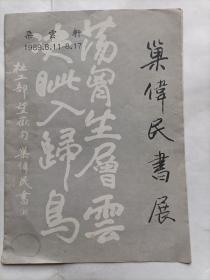 朵雲軒
1989.8.11-8.17
巢偉民書展
蕩胷生層雲
決眦入歸鳥
杜工部望嶽句 巢偉民書